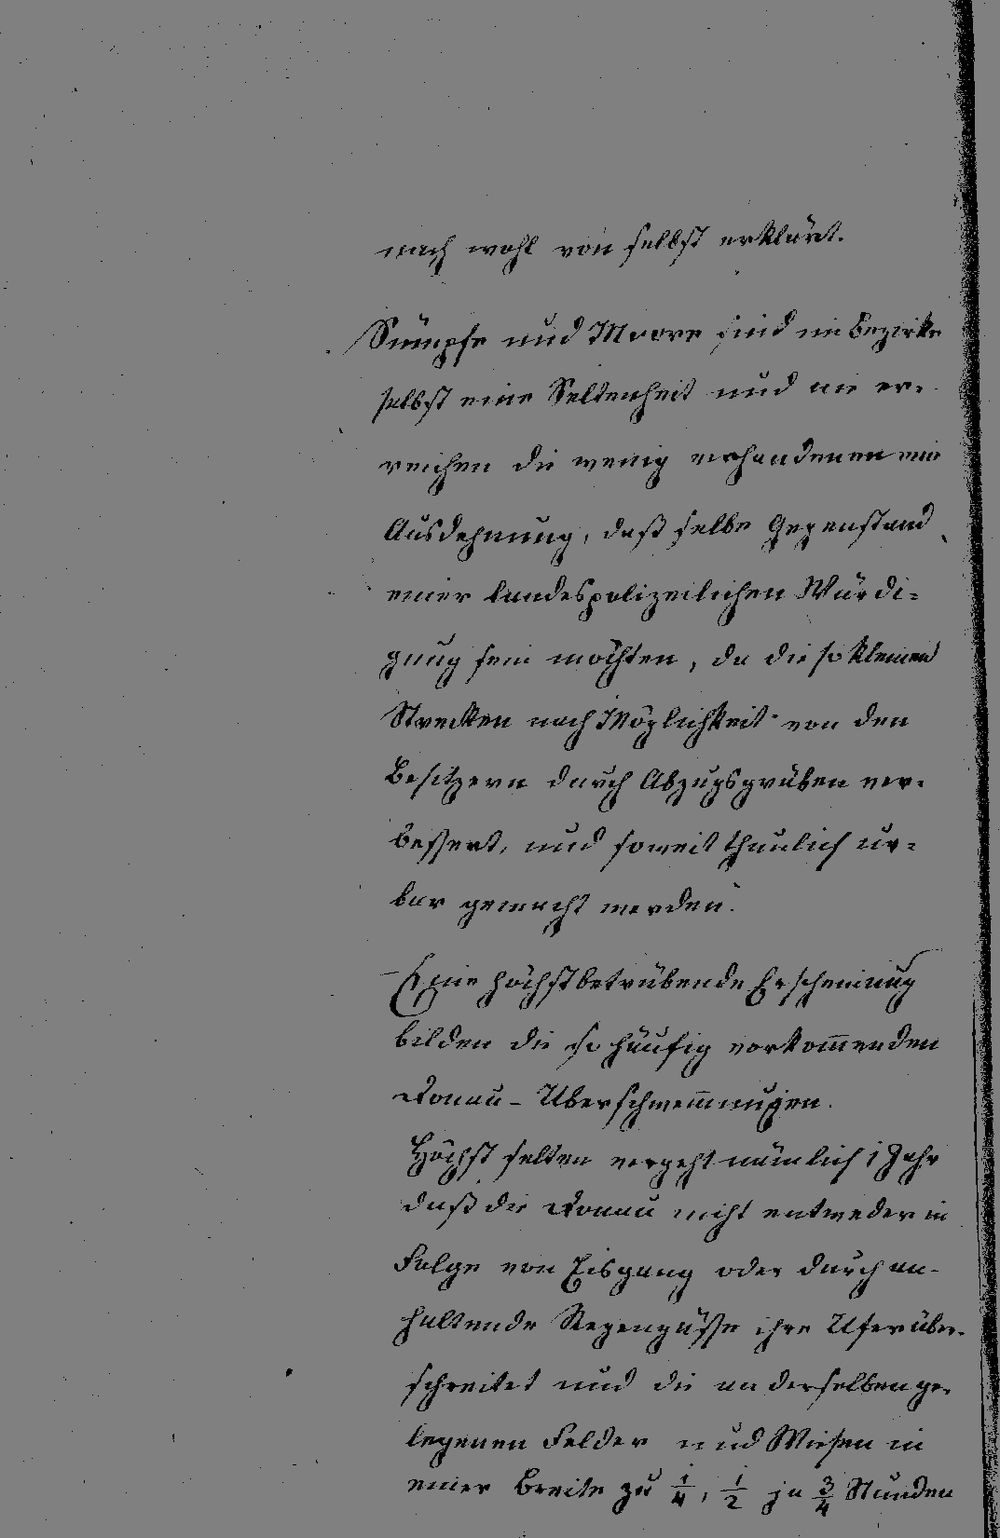 nach wohl von selbst erklärt.
Sümpfe und Moore sind im Bezirke
selbst eine Seltenheit und nie er-
reichen die wenig vorhandenen eine
Ausdehnung, daß selbe Gegenstand
einer landespolizeilichen Würdi=
gung sein möchten, da diese kleinen
Strecken nach Möglichkeit von den
Besitzern durch Abzugsgräben ver-
bessert, und soweit thunlich ur=
bar gemacht werden.
Eine höchstbetrübende Erscheinung
bilden die so häufig vorkommenden
Donau-Überschwemmungen.
Höchst selten vergeht nämlich 1 Jahr
daß die Donau nicht entweder in
Folge von Eisgang oder durch an-
haltende Regengüsse ihre Ufer über-
schreitet und die an derselben ge-
legenen Felder und Wiesen in
einer Breite zu 1/4, 1/2 ja 3/4 Stunden